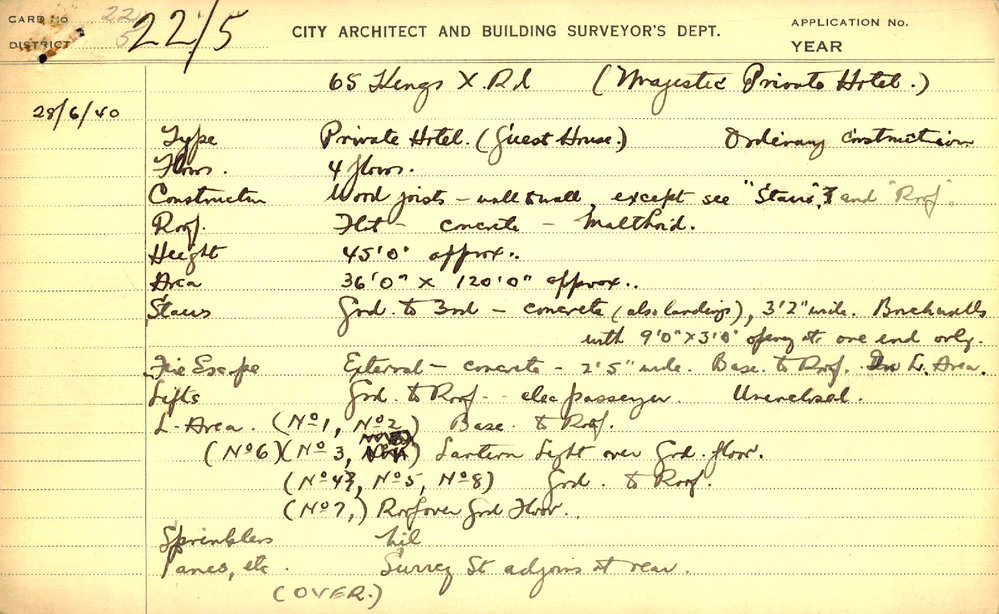 CARD No 22 22/5 CITY ARCHITECT AND BUILDING SURVEYOR'S DEPT. APPLICATION No.
DISTRICT 5 YEAR
65 Kings X Rd (Majestic Private Hotel.)
28/6/40
Type Private Hotel. (Guest House.) Ordinary construction
Floors. 4 floors.
Construction Wood joists – wall to wall, except see "Stairs", and "Roof".
Roof. Flat – concrete – Malthoid.
Height 45'0" approx..
Area 36'0" X 120'0" approx..
Stairs Grd. to 3rd – concrete (also landings), 3'2" wide. Brickwalls
with 9'0" X 3'0" opening at one end only.
Fire Escape External – concrete – 2'5" wide. Base. to Roof. In L. Area.
Lifts Grd. to Roof – elec passenger. Unenclosed.
L-Area. (No1, No2) Base. to Roof.
(No6) (No3, Lantern Light over Grd. floor.
(No4, No5, No8) Grd. to Roof.
(No7,) Roof over Grd Floor.
Sprinklers Nil
Lanes, etc. Surrey St adjoins at rear.
(OVER.)